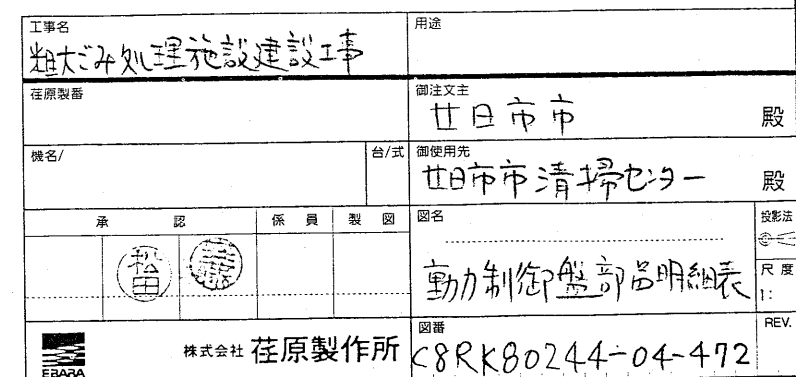 工事名
粗大ごみ処理施設建設工事
用途
荏原製番
御注文主
廿日市市 殿
機名/
台/式
御使用先
廿日市市清掃センター 殿
承 認
係 員
製 図
図名
投影法
松田
動力制御盤部品明細表
尺度
1:
EBARA
株式会社 荏原製作所
図番
C8RK80244-04-472
REV.